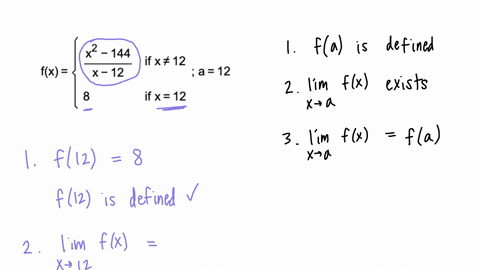 f(x) = { (x² − 144)/(x − 12) if x ≠ 12 ; a = 12
8 if x = 12
1. f(a) is defined
2. lim x→a f(x) exists
3. lim x→a f(x) = f(a)
1. f(12) = 8
f(12) is defined ✓
2. lim x→12 f(x) =